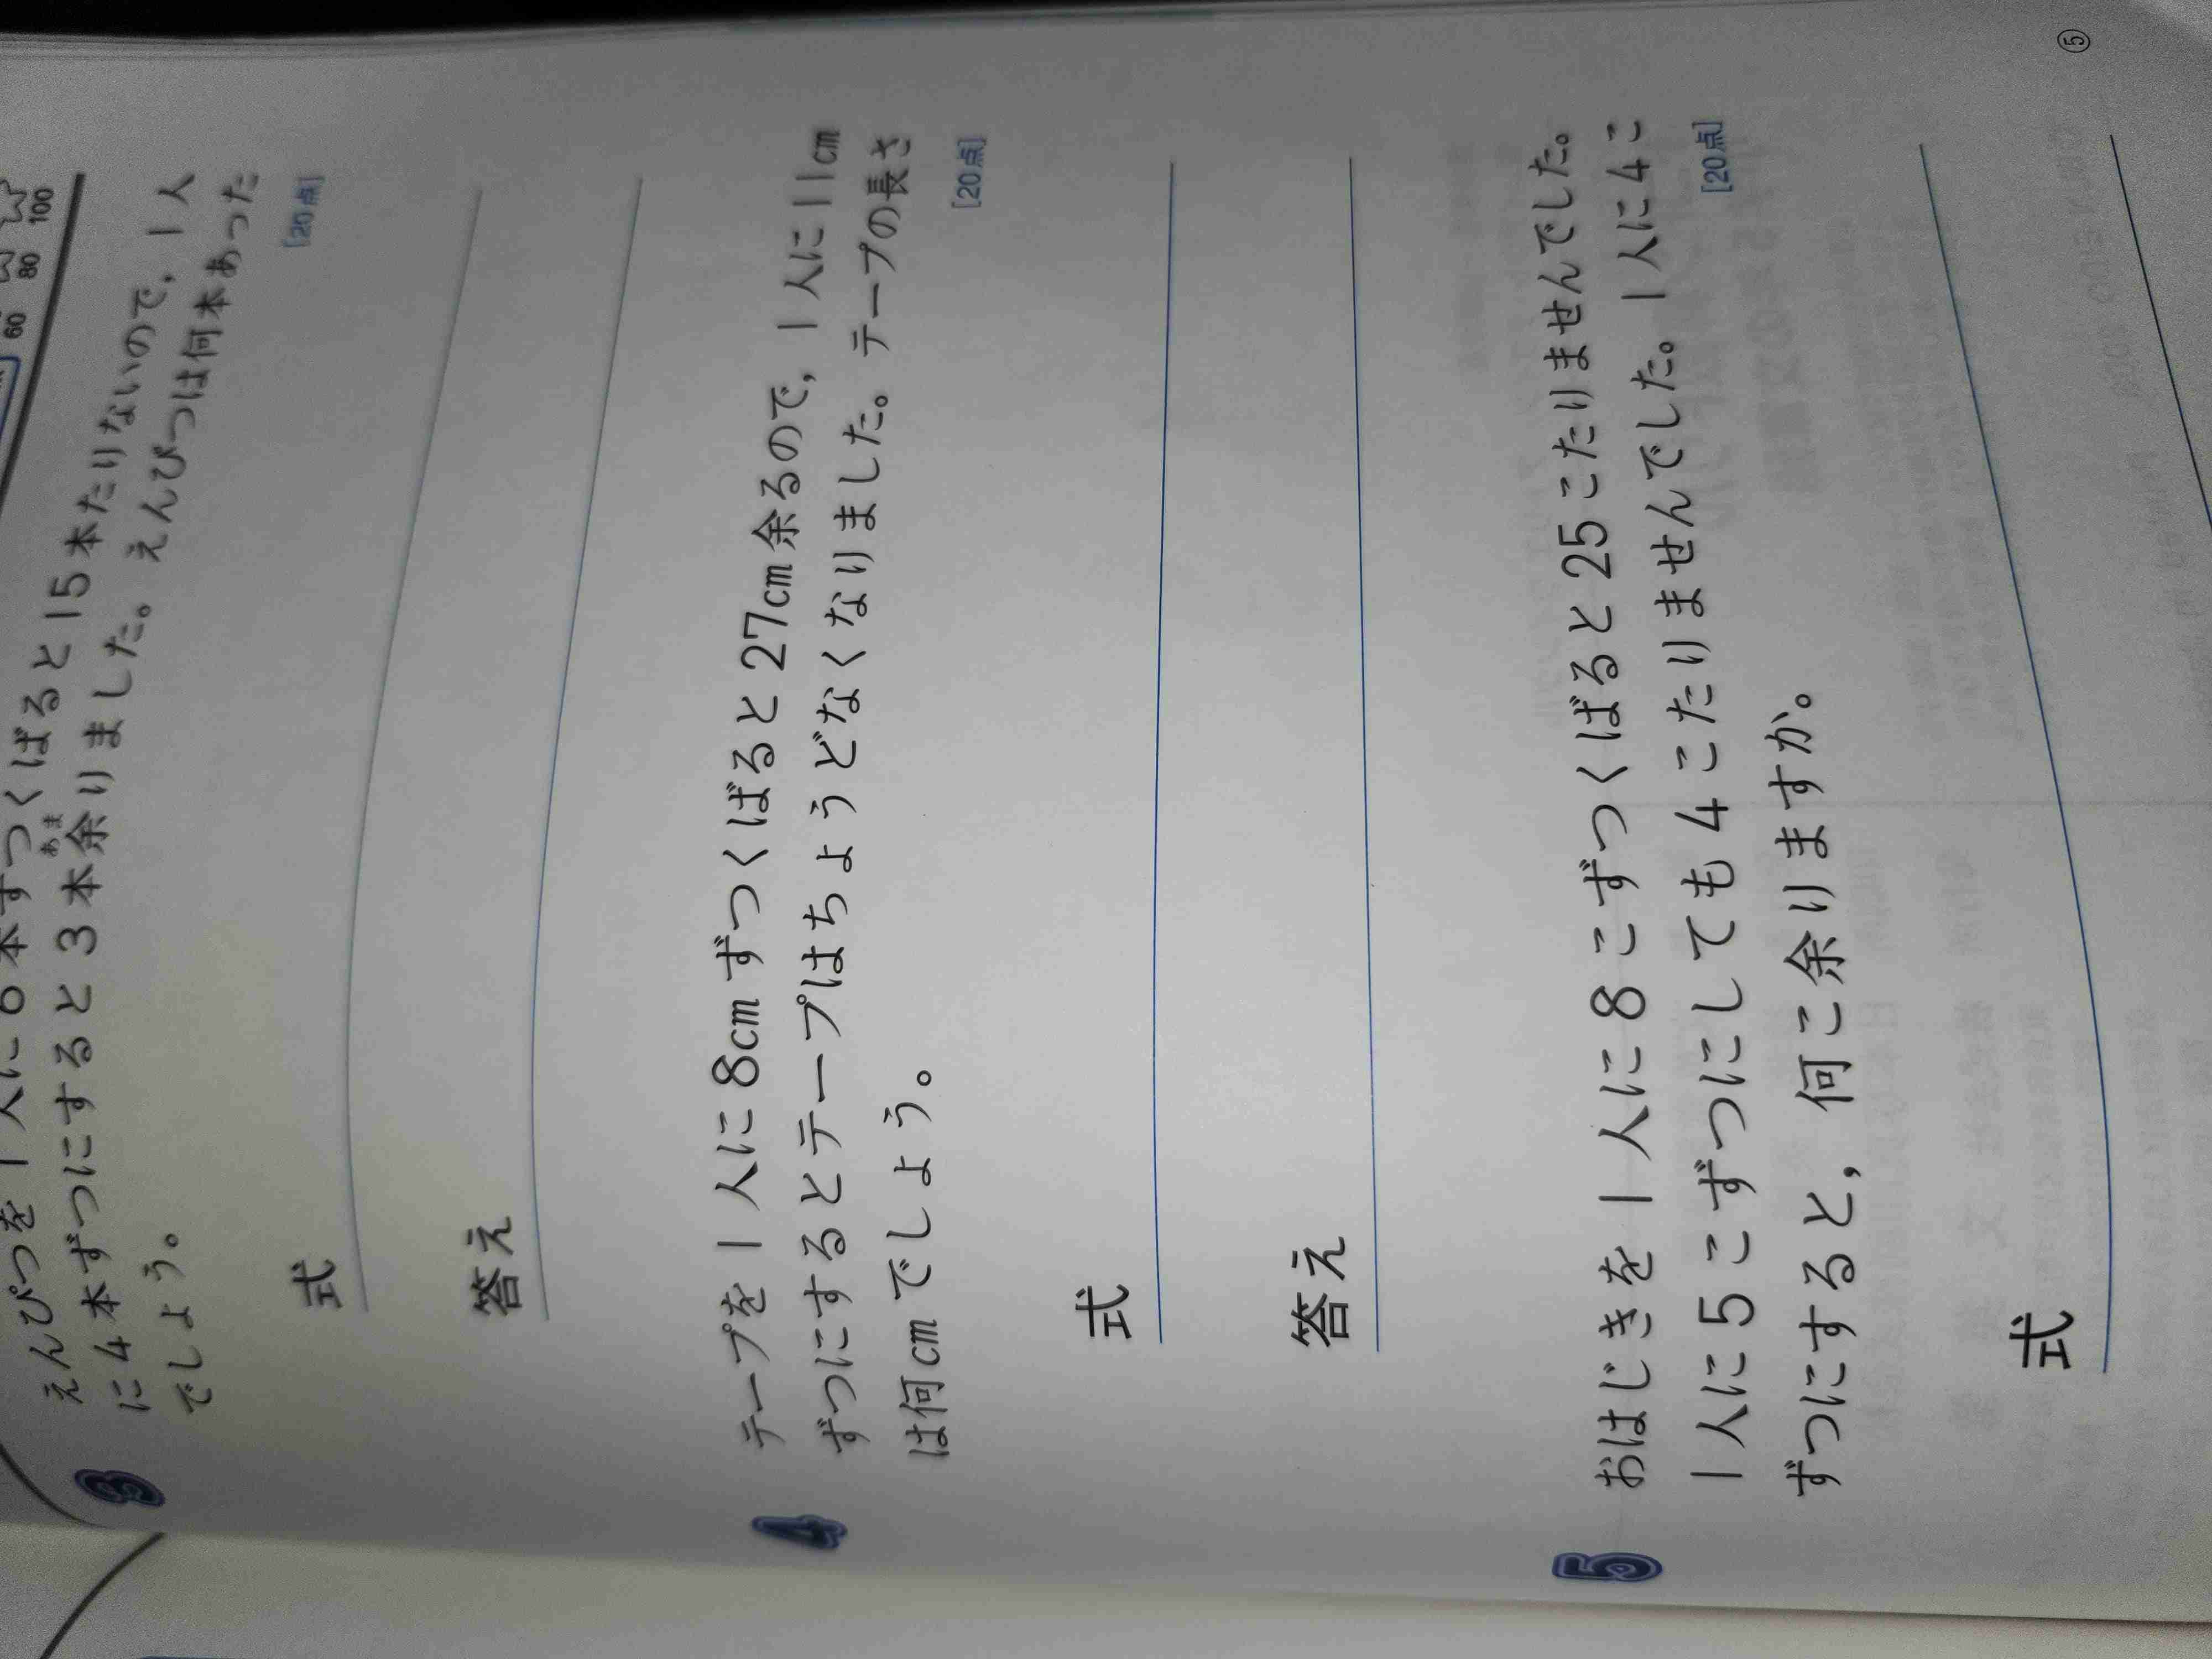 60 80 100
3 えんぴつを1人に6本ずつくばると15本たりないので，1人
に4本ずつにすると3本余りました。えんぴつは何本あった
あま
でしょう。
[20点]
式
答え
4 テープを1人に8cmずつくばると27cm余るので，1人に11cm
ずつにするとテープはちょうどなくなりました。テープの長さ
は何cmでしょう。
[20点]
式
答え
5 おはじきを1人に8こずつくばると25こたりませんでした。
1人に5こずつにしても4こたりませんでした。1人に4こ
ずつにすると，何こ余りますか。
[20点]
式
⑤